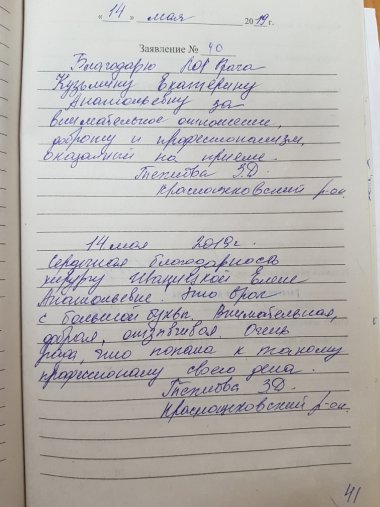 « 14 » мая 2019 г.
Заявление № 40
Благодарю Лор врача
Кузьмину Екатерину
Анатольевну за
внимательное отношение,
доброту и профессионализм,
оказанный на приеме.
З.Д.
Краснощековский р-он.
14 мая 2019г.
Сердечная благодарность
хирургу Иваницкой Елене
Анатольевне. Это врач
с большой буквы. Внимательная,
добрая, отзывчивая. Очень
рада, что попала к такому
профессионалу своего дела.
З.Д.
Краснощековский р-он.
41